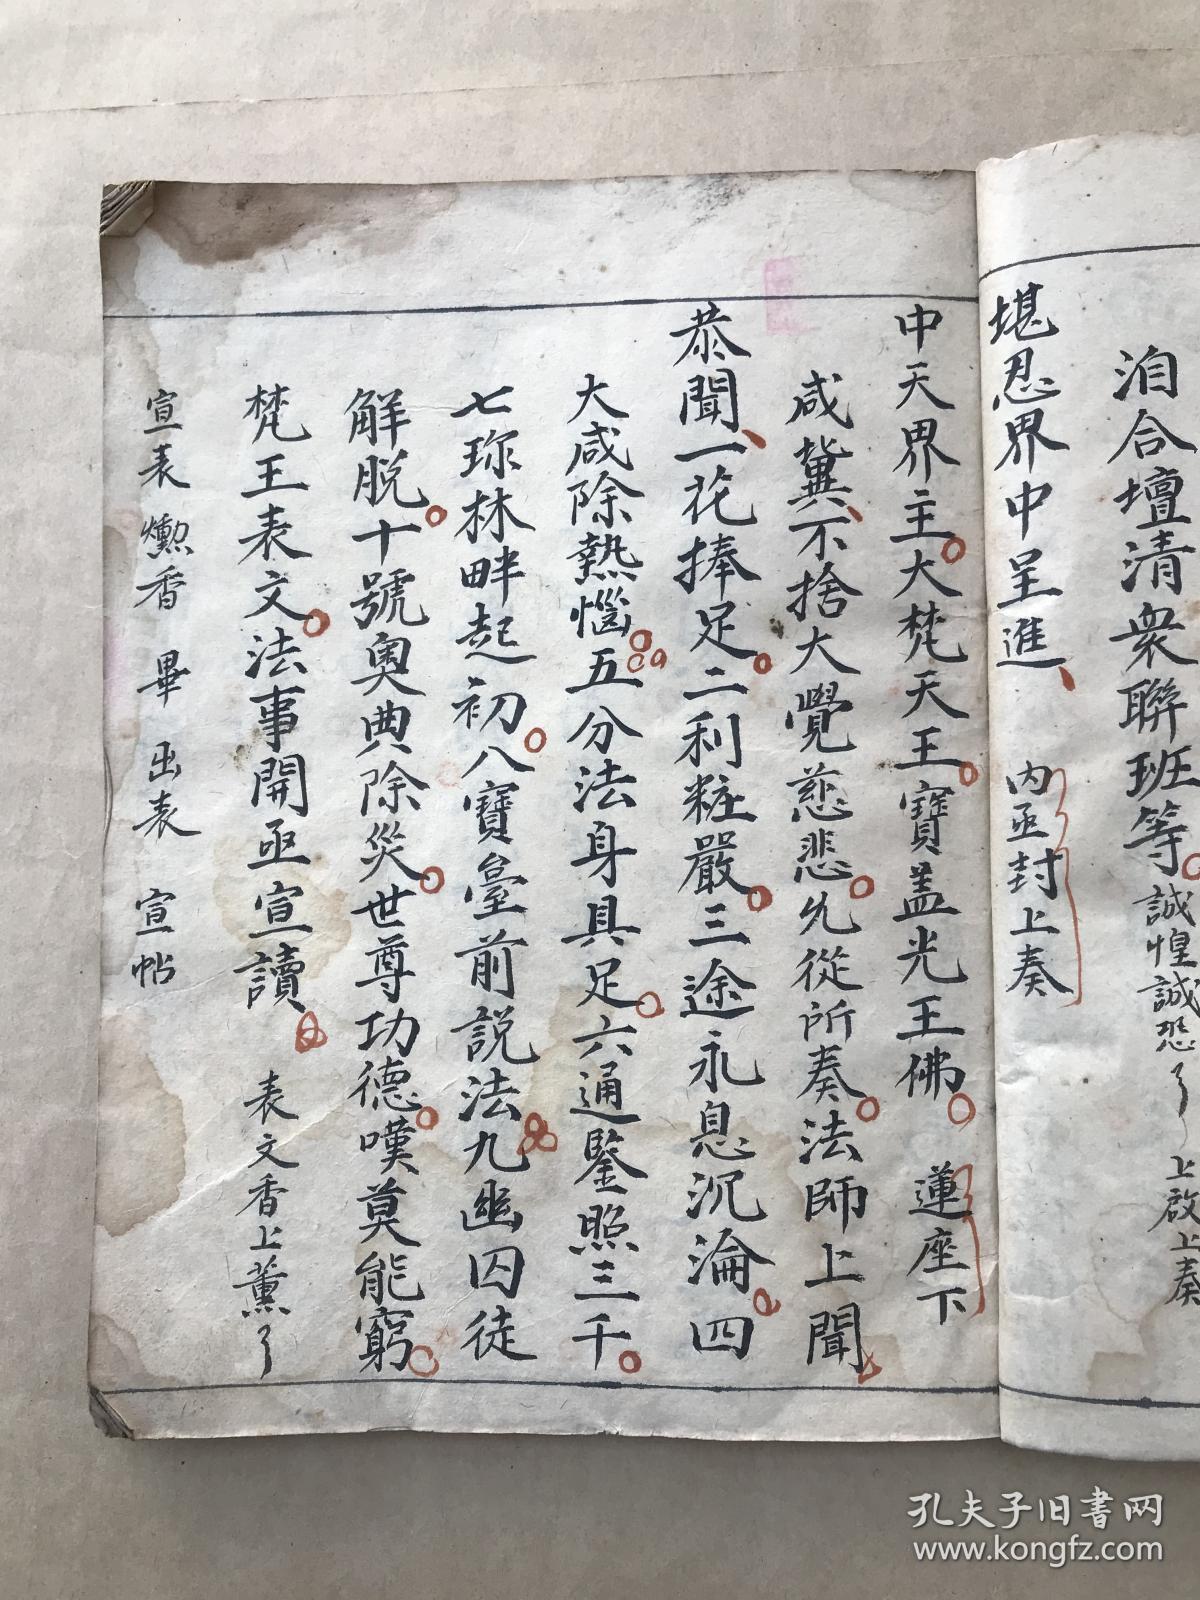 洎合壇清衆聯班等誠惶誠恐了上啟上奏
堪忍界中呈進內函封上奏
中天界主大梵天王寶盖光王佛蓮座下
咸冀不捨大覺慈悲允從所奏法師上聞
恭聞一花捧足二利粧嚴三途永息沉淪四
大咸除熱惱五分法身具足六通鑒照三千
七珎林畔起初八寶臺前説法九幽囚徒
解脱十號奧典除災世尊功德嘆莫能窮
梵王表文法事開函宣讀表文香上薰了
宣表爋香畢出表宣帖
孔夫子旧书网
www.kongfz.com